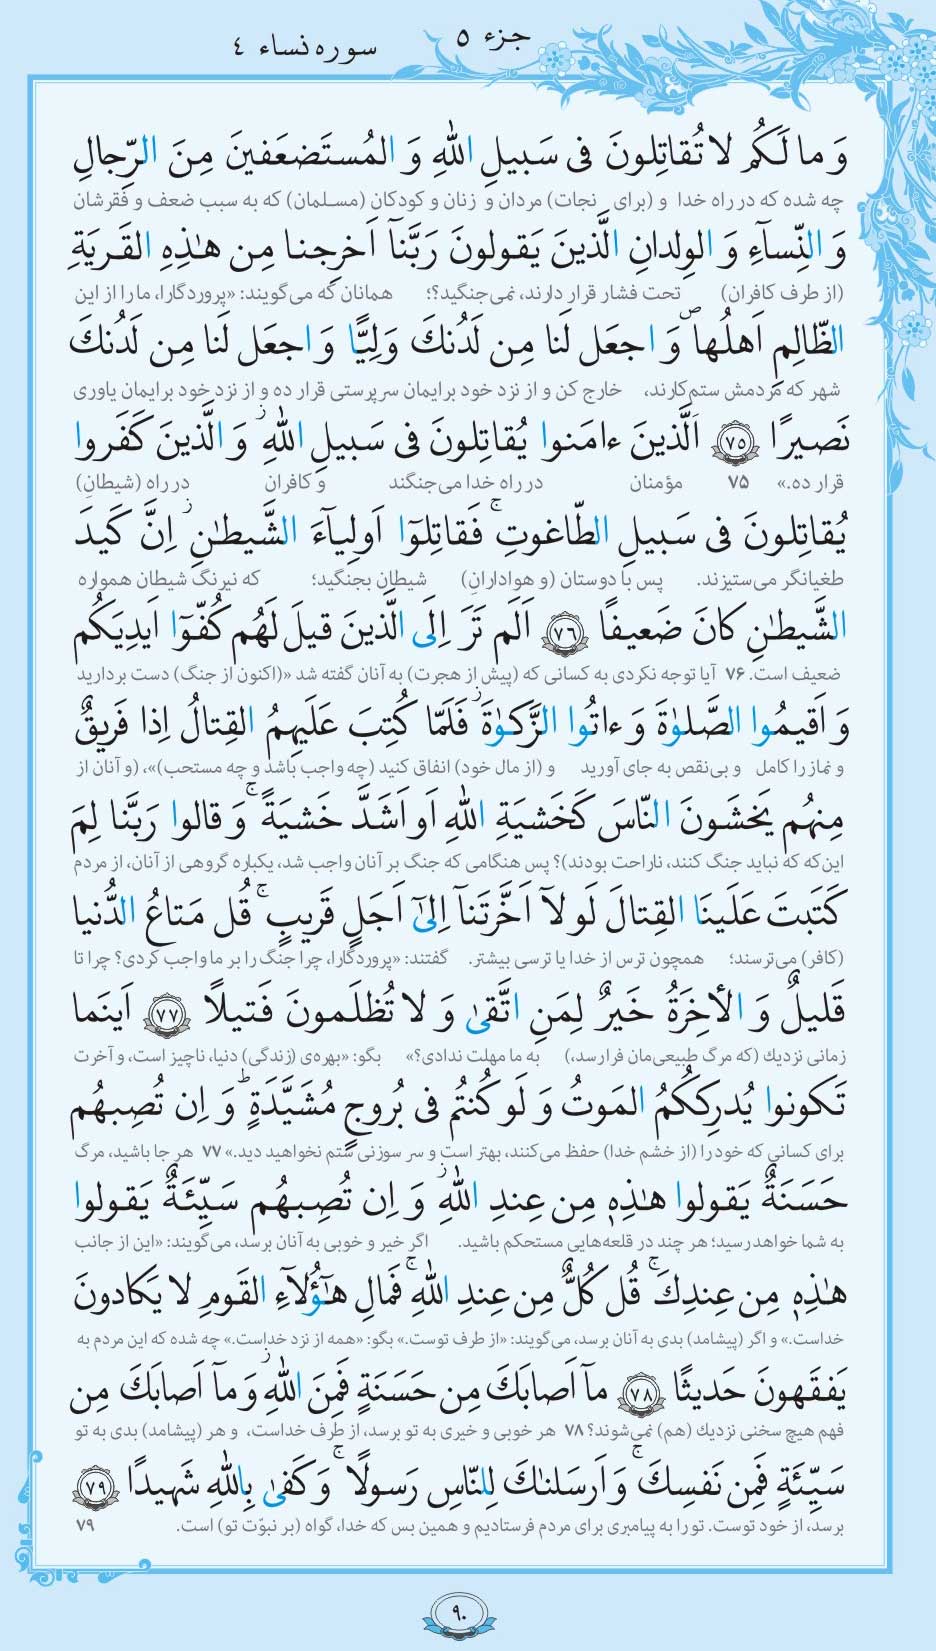 جزء ۵
سوره نساء ۴
وَ ما لَكُم لا تُقاتِلونَ فى سَبيلِ اللّٰهِ وَ المُستَضعَفينَ مِنَ الرِّجالِ
چه شده که در راه خدا و (برای نجات) مردان و زنان و کودکان (مسلمان) که به سبب ضعف و فقرشان
وَ النِّسآءِ وَ الوِلدانِ الَّذينَ يَقولونَ رَبَّنآ اَخرِجنا مِن هٰذِهِ القَريَةِ
(از طرف کافران) تحت فشار قرار دارند، نمی‌جنگید؟؛ همانان که می‌گویند: «پروردگارا، ما را از این
الظّالِمِ اَهلُهاۖ وَ اجعَل لَنا مِن لَدُنكَ وَلِيًّا وَ اجعَل لَنا مِن لَدُنكَ
شهر که مردمش ستم‌کارند، خارج کن و از نزد خود برایمان سرپرستی قرار ده و از نزد خود برایمان یاوری
نَصيرًا ﴿۷۵﴾ اَلَّذينَ ءامَنوا يُقاتِلونَ فى سَبيلِ اللّٰهِ ز وَ الَّذينَ كَفَروا
قرار ده.» ۷۵ مؤمنان در راه خدا می‌جنگند و کافران در راه (شیطانِ)
يُقاتِلونَ فى سَبيلِ الطّاغوتِۚ فَقاتِلوٓا اَولِيآءَ الشَّيطٰنِ ز اِنَّ كَيدَ
طغیانگر می‌ستیزند. پس با دوستان (و هوادارانِ) شیطان بجنگید؛ که نیرنگ شیطان همواره
الشَّيطٰنِ كانَ ضَعيفًا ﴿۷۶﴾ اَلَم تَرَ اِلَى الَّذينَ قيلَ لَهُم كُفّوٓا اَيدِيَكُم
ضعیف است. ۷۶ آیا توجه نکردی به کسانی که (پیش از هجرت) به آنان گفته شد «(اکنون از جنگ) دست بردارید
وَ اَقيمُوا الصَّلوٰةَ وَ ءاتُوا الزَّكوٰةَ ز فَلَمّا كُتِبَ عَلَيهِمُ القِتالُ اِذا فَريقٌ
و نماز را کامل و بی‌نقص به جای آورید و (از مال خود) انفاق کنید (چه واجب باشد و چه مستحب)»، (و آنان از
مِنهُم يَخشَونَ النّاسَ كَخَشيَةِ اللّٰهِ اَو اَشَدَّ خَشيَةًۚ وَ قالوا رَبَّنا لِمَ
این‌که که نباید جنگ کنند، ناراحت بودند)؟ پس هنگامی که جنگ بر آنان واجب شد، یکباره گروهی از آنان، از مردم
كَتَبتَ عَلَينَا القِتالَ لَولآ اَخَّرتَنآ اِلىٓ اَجَلٍ قَريبٍۚ قُل مَتاعُ الدُّنيا
(کافر) می‌ترسند؛ همچون ترس از خدا یا ترسی بیشتر. گفتند: «پروردگارا، چرا جنگ را بر ما واجب کردی؟ چرا تا
قَليلٌ وَ الأخِرَةُ خَيرٌ لِمَنِ اتَّقىٰ وَ لا تُظلَمونَ فَتيلًا ﴿۷۷﴾ اَينَما
زمانی نزدیك (که مرگ طبیعی‌مان فرا رسد،) به ما مهلت ندادی؟» بگو: «بهره‌ی (زندگی) دنیا، ناچیز است، و آخرت
تَكونوا يُدرِككُمُ المَوتُ وَ لَو كُنتُم فى بُروجٍ مُشَيَّدَةٍ ط وَ اِن تُصِبهُم
برای کسانی که خود را (از خشم خدا) حفظ می‌کنند، بهتر است و سر سوزنی ستم نخواهید دید.» ۷۷ هر جا باشید، مرگ
حَسَنَةٌ يَقولوا هٰذِهٖ مِن عِندِ اللّٰهِ ز وَ اِن تُصِبهُم سَيِّئَةٌ يَقولوا
به شما خواهد رسید؛ هر چند در قلعه‌هایی مستحکم باشید. اگر خیر و خوبی به آنان برسد، می‌گویند: «این از جانب
هٰذِهٖ مِن عِندِكَۚ قُل كُلٌّ مِن عِندِ اللّٰهِۚ فَمالِ هٰٓؤُلآءِ القَومِ لا يَكادونَ
خداست.» و اگر (پیشامد) بدی به آنان برسد، می‌گویند: «از طرف توست.» بگو: «همه از نزد خداست.» چه شده که این مردم به
يَفقَهونَ حَديثًا ﴿۷۸﴾ مآ اَصابَكَ مِن حَسَنَةٍ فَمِنَ اللّٰهِ ز وَ مآ اَصابَكَ مِن
فهم هیچ سخنی نزدیك (هم) نمی‌شوند؟ ۷۸ هر خوبی و خیری به تو برسد، از طرف خداست، و هر (پیشامد) بدی به تو
سَيِّئَةٍ فَمِن نَفسِكَۚ وَ اَرسَلنٰكَ لِلنّاسِ رَسولًاۚ وَ كَفىٰ بِاللّٰهِ شَهيدًا ﴿۷۹﴾
برسد، از خود توست. تو را به پیامبری برای مردم فرستادیم و همین بس که خدا، گواه (بر نبوّت تو) است. ۷۹
۹۰